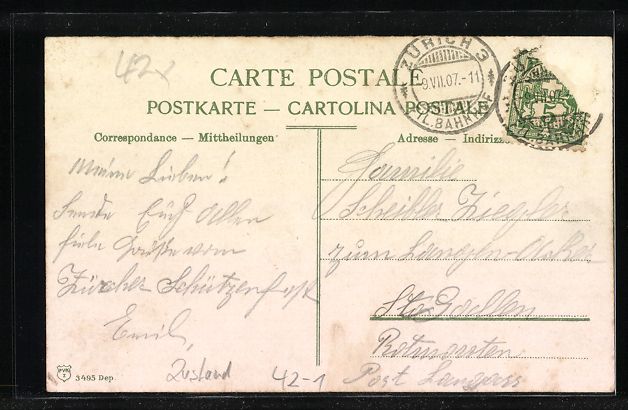 42x
CARTE POSTALE
POSTKARTE — CARTOLINA POSTALE
ZÜRICH 3
9.VII.07.-11
FIL.BAHNHOF
5
Correspondance — Mittheilungen
Adresse — Indirizzo
Meine Lieben!
Sende Euch allen
viele Grüße vom
Zürcher Schützenfest
Emil
Familie
Scheitler-Ziegler
zum Langen-Acker
St. Gallen
Rotmonten
Post Langgass
PVKZ
3495 Dep.
Zustand
42-1